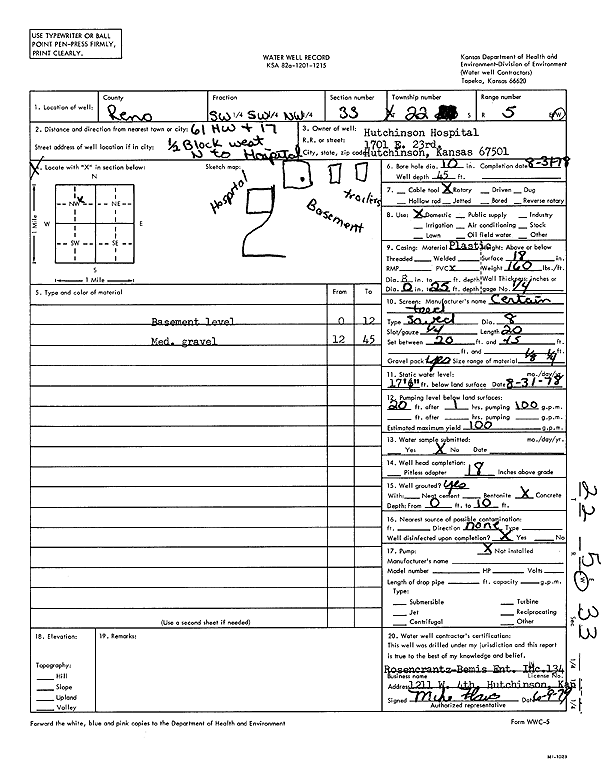 USE TYPEWRITER OR BALL
POINT PEN-PRESS FIRMLY,
PRINT CLEARLY.
WATER WELL RECORD
KSA 82a-1201-1215
Kansas Department of Health and
Environment-Division of Environment
(Water well Contractors)
Topeka, Kansas 66620
1. Location of well: County Reno Fraction SW 1/4 SW 1/4 NW 1/4 Section number 33 Township number T 22 S Range number R 5 E/W
2. Distance and direction from nearest town or city: 61 HW + 17
Street address of well location if in city: 1/2 Block west
N to Hospital
3. Owner of well: Hutchinson Hospital
R.R. or street: 1701 E. 23rd,
City, state, zip code: Hutchinson, Kansas 67501
4. Locate with "X" in section below:
N
NW NE
W E
SW SE
S
1 Mile
1 Mile
Sketch map:
Hospital
Basement
trailers
5. Type and color of material From To
Basement level 0 12
Med. gravel 12 45
(Use a second sheet if needed)
6. Bore hole dia. 10 in. Completion date 8-31-78
Well depth 45 ft.
7. Cable tool X Rotary Driven Dug
Hollow rod Jetted Bored Reverse rotary
8. Use: X Domestic Public supply Industry
Irrigation Air conditioning Stock
Lawn Oil field water Other
9. Casing: Material Plastic Height: Above or below
Threaded Welded Surface 18 in.
RMP PVC X Weight 160 lbs./ft.
Dia. 8 in. to ft. depth Wall Thickness: inches or
Dia. 0 in. 25 ft. depth gage No. 1/4
10. Screen: Manufacturer's name Certain
teed
Type Sawed Dia. 8
Slot/gauze 1/4 Length 20
Set between 20 ft. and 45 ft.
ft. and ft.
Gravel pack? yes Size range of material 1/8 1/4
11. Static water level: mo./day/yr.
17'6" ft. below land surface Date 8-31-78
12. Pumping level below land surfaces:
20 ft. after 1 hrs. pumping 100 g.p.m.
ft. after hrs. pumping g.p.m.
Estimated maximum yield 100 g.p.m.
13. Water sample submitted: mo./day/yr.
Yes X No Date
14. Well head completion:
Pitless adapter 18 Inches above grade
15. Well grouted? yes
With: Neat cement Bentonite X Concrete
Depth: From 0 ft. to 10 ft.
16. Nearest source of possible contamination:
ft. Direction none Type
Well disinfected upon completion? X Yes No
17. Pump: X Not installed
Manufacturer's name
Model number HP Volts
Length of drop pipe ft. capacity g.p.m.
Type:
Submersible Turbine
Jet Reciprocating
Centrifugal Other
18. Elevation:
Topography:
Hill
Slope
Upland
Valley
19. Remarks:
20. Water well contractor's certification:
This well was drilled under my jurisdiction and this report
is true to the best of my knowledge and belief.
Rosencrantz-Bemis Ent. Inc. 134
Business name License No.
Address 1211 W. 4th, Hutchinson, Kan
Signed Date 6-9-79
Authorized representative
Forward the white, blue and pink copies to the Department of Health and Environment
Form WWC-5
22-5 W 33
T R E W Sec 1/4 1/4 1/4